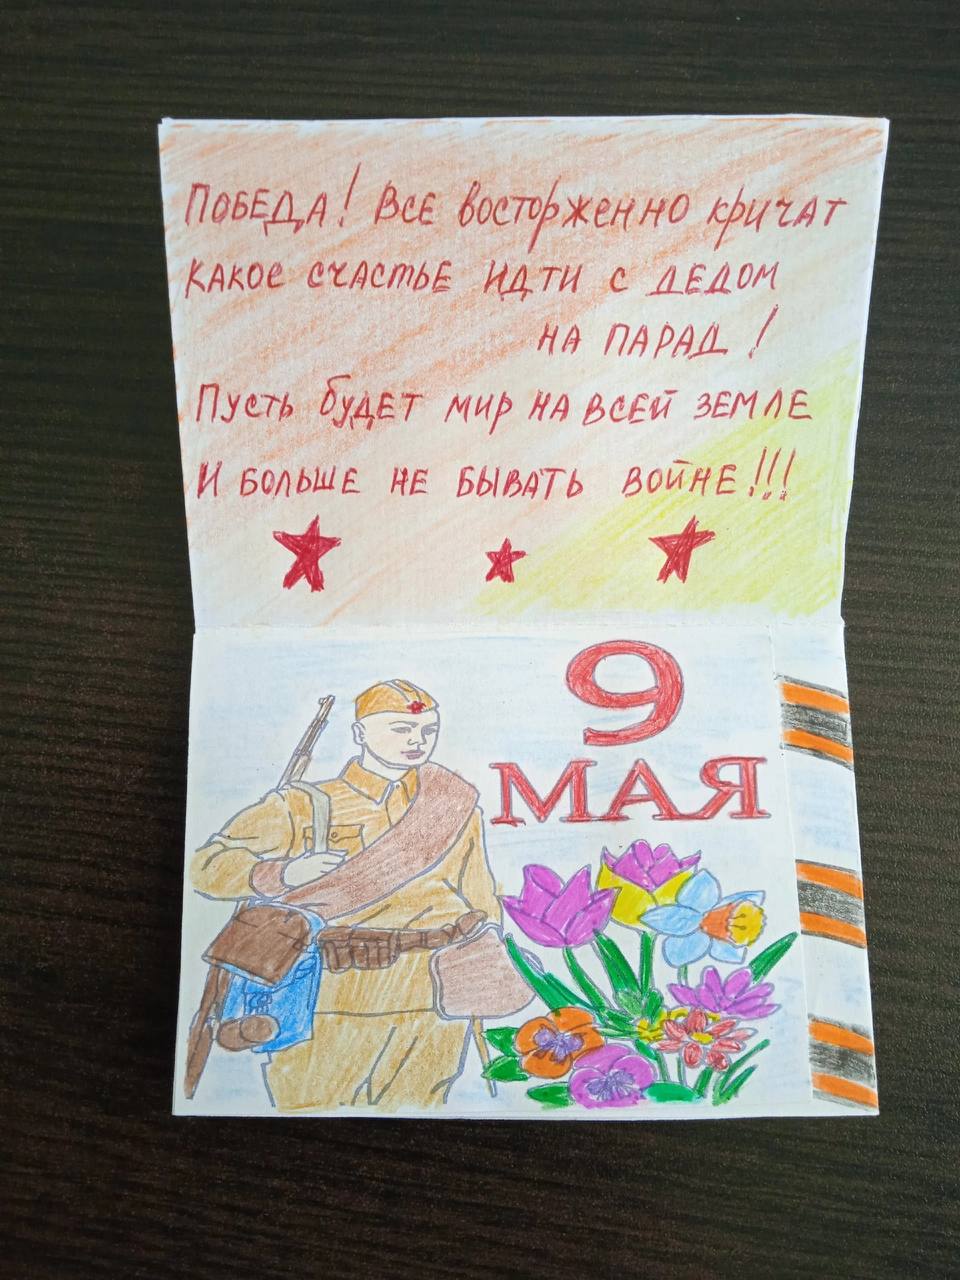 ПОБЕДА! ВСЕ восторженно кричат
КАКОЕ СЧАСТЬЕ ИДТИ С ДЕДОМ
НА ПАРАД!
Пусть будет мир на всей земле
И БОЛЬШЕ НЕ БЫВАТЬ ВОЙНЕ!!!
9
МАЯ